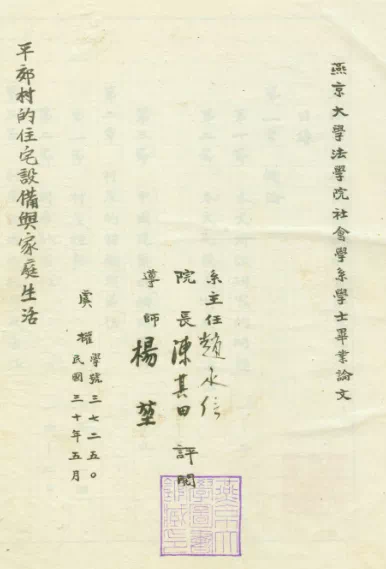 燕京大學法學院社會學系學士畢業論文
系主任趙承信
院長陳其田 評閱
導師楊堃
學號三七二五〇
虞權
民國三十年五月
平郊村的住宅設備與家庭生活
燕京大
學圖書
館藏印